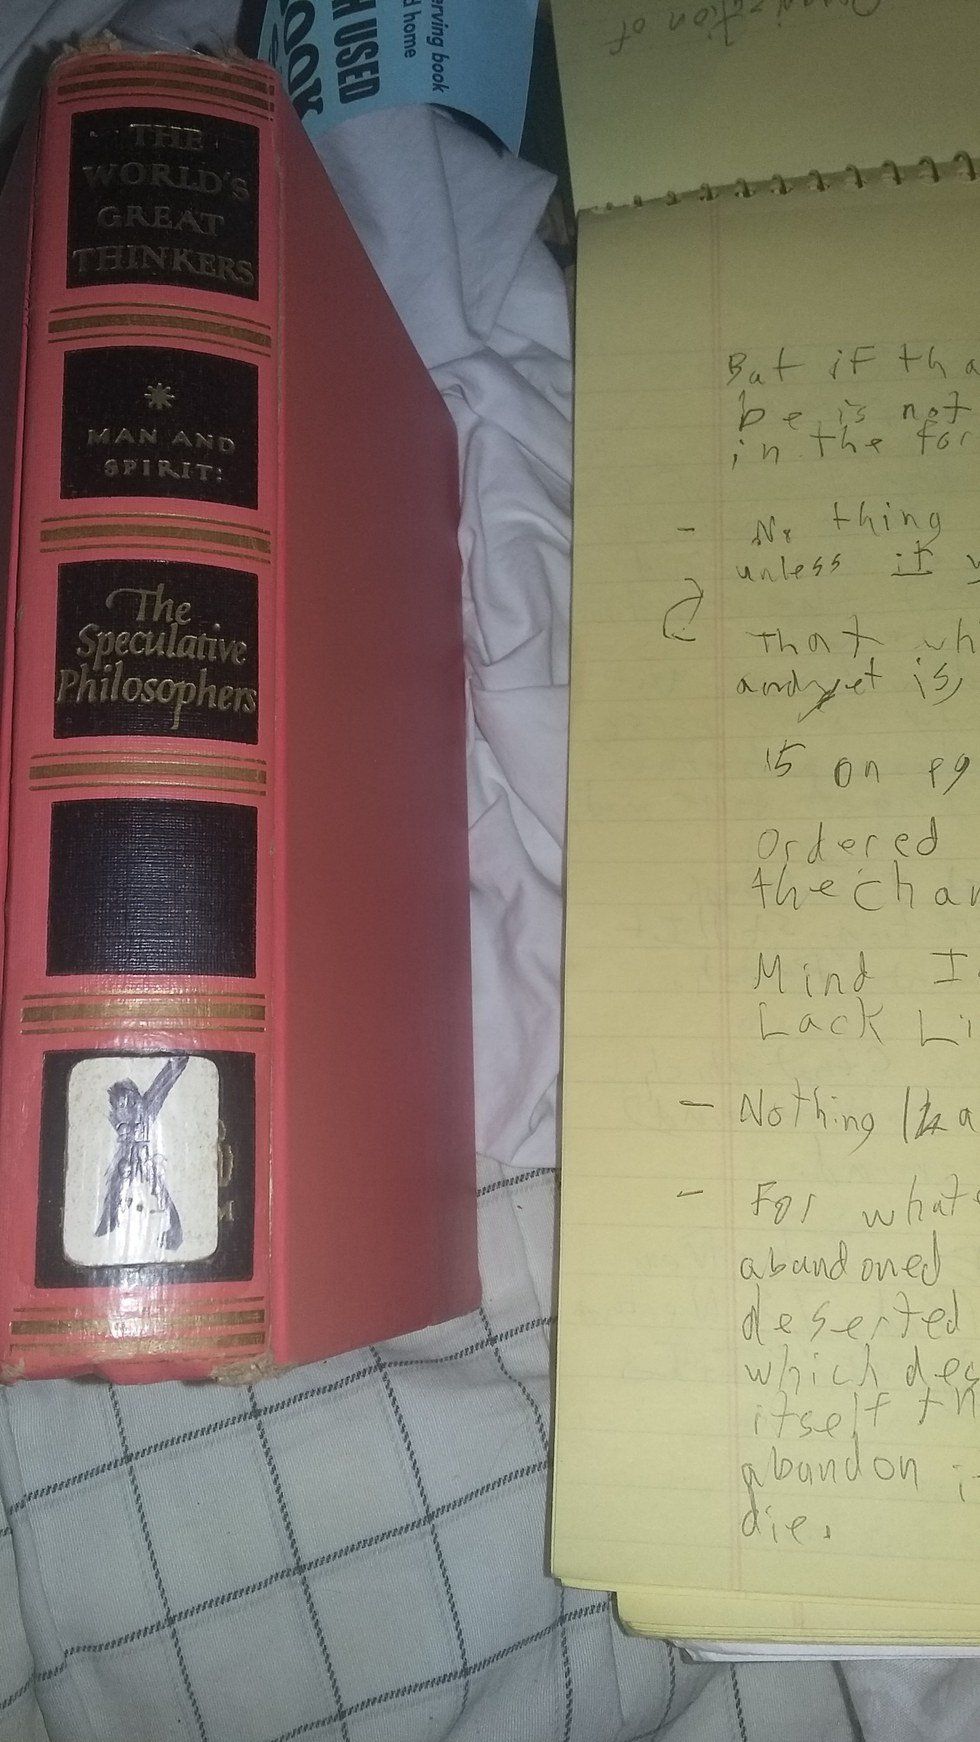 THE
WORLD'S
GREAT
THINKERS
MAN AND
SPIRIT:
The
Speculative
Philosophers
OOK
H USED
erving book
d home
of
But if tha
be is not
in the for
- No thing
unless it w
that wh
and yet is,
15 on pg
Ordered
the char
Mind I
Lack Li
- Nothing a
- For what
abandoned
deserted
which des
itself th
abandon i
die.